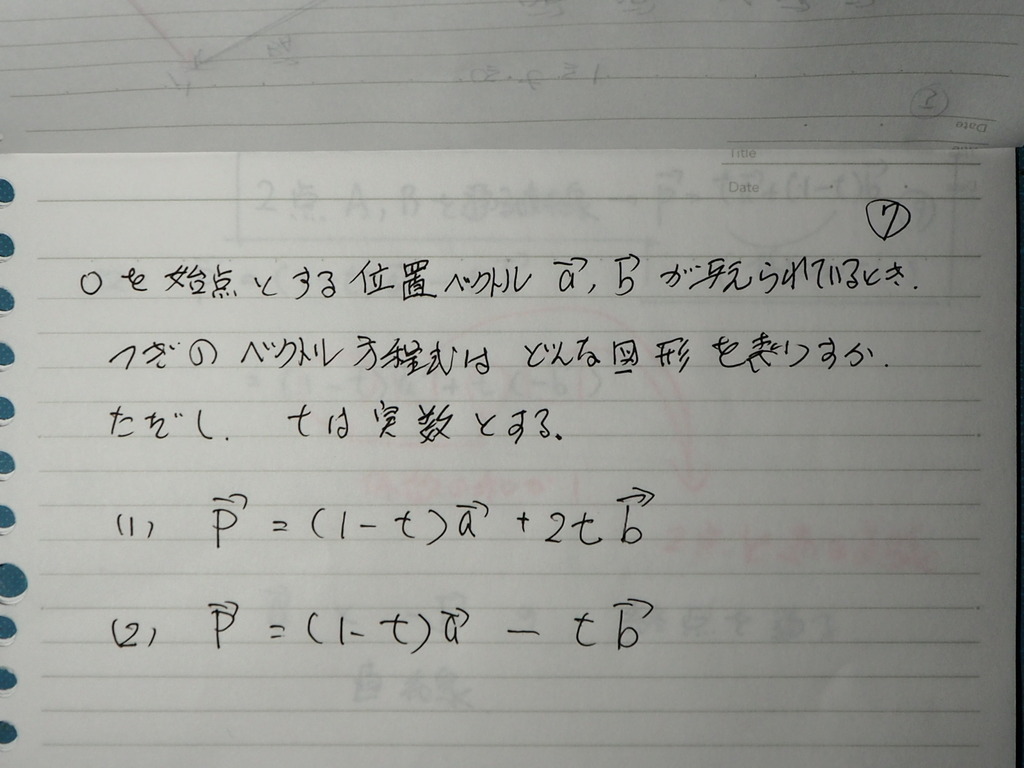 Title
Date
⑦
Oを始点とする位置ベクトル a→, b→ が与えられているとき.
つぎのベクトル方程式はどんな図形を表わすか.
ただし. tは実数とする。
(1) p→ = (1-t)a→ + 2t b→
(2) p→ = (1-t)a→ - t b→